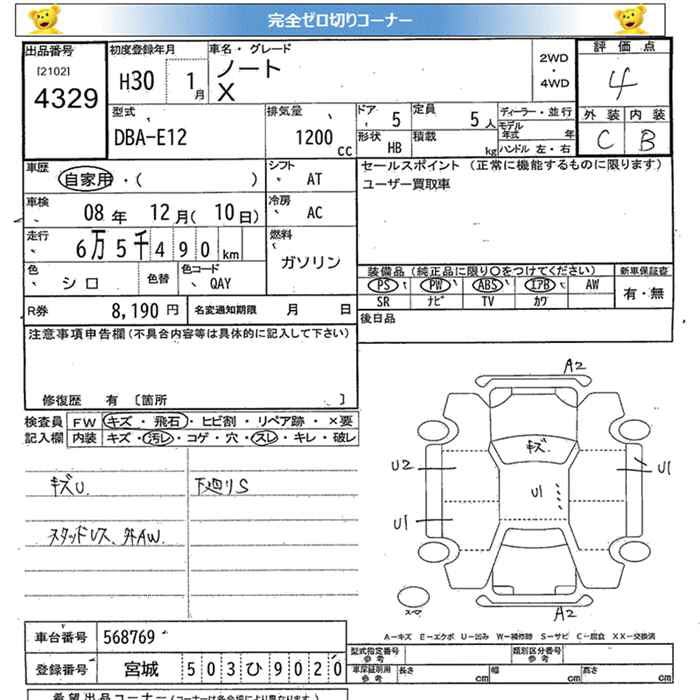 完全ゼロ切りコーナー
出品番号
[2102]
4329
初度登録年月
H30 1月
車名・グレード
ノート
X
2WD
・
4WD
評価点
4
外装 内装
C B
型式
DBA-E12
排気量
1200 cc
ドア 5
定員 5人
形状 HB
積載 kg
ディーラー・並行
モデル年式 年
ハンドル 左・右
車歴
自家用・( )
シフト AT
車検
08年 12月(10日)
冷房 AC
走行
6万5千490km
燃料
ガソリン
色 シロ
色替
色コード QAY
R券 8,190円
名変通知期限 月 日
セールスポイント (正常に機能するものに限ります)
ユーザー買取車
装備品(純正品に限り〇をつけてください)
新車保証書
PS PW ABS エアB AW
SR ナビ TV カワ
有・無
後日品
注意事項申告欄(不具合内容等は具体的に記入して下さい)
修復歴 有 〔箇所 〕
検査員
記入欄
FW キズ・飛石・ヒビ割・リペア跡・×要
内装 キズ・汚レ・コゲ・穴・スレ・キレ・破レ
キズU.
下廻りS
スタッドレス、外AW.
A2
キズ.
U2
U1
U1
U1
A2
スペア
A-キズ E-エクボ U-凹み W-補修跡 S-サビ C-腐食 XX-交換済
車台番号 568769
登録番号 宮城 503ひ9020
型式指定番号
参考
類別区分番号
参考
車庫証明用
参考
長さ cm
幅 cm
高さ cm
希望出品コーナー